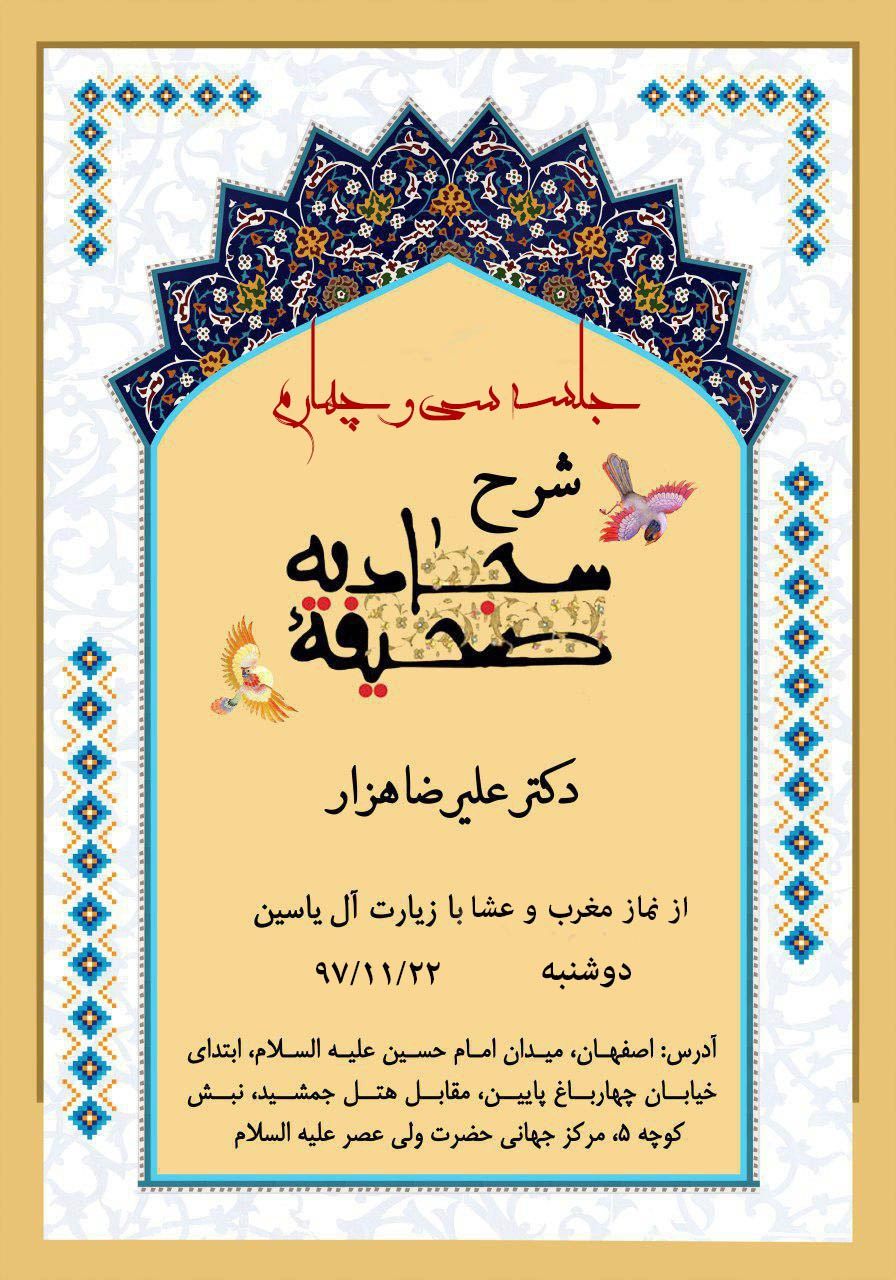 جلسه سی و چهارم
شرح
صحیفهٔ
سجادیه
دکتر علیرضا هزار
از نماز مغرب و عشا با زیارت آل یاسین
دوشنبه ۹۷/۱۱/۲۲
آدرس: اصفهان، میدان امام حسین علیه السلام، ابتدای
خیابان چهارباغ پایین، مقابل هتل جمشید، نبش
کوچه ۵، مرکز جهانی حضرت ولی عصر علیه السلام